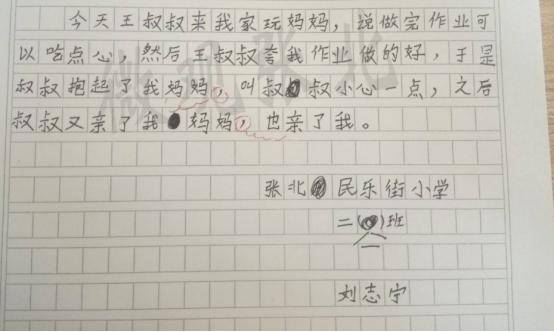 今天王叔叔来我家玩妈妈，说做完作业可
以吃点心，然后王叔叔夸我作业做的好，于是
叔叔抱起了我妈妈，叫叔叔小心一点，之后
叔叔又亲了我妈妈，也亲了我。
张北民乐街小学
二(二)班
刘志宇